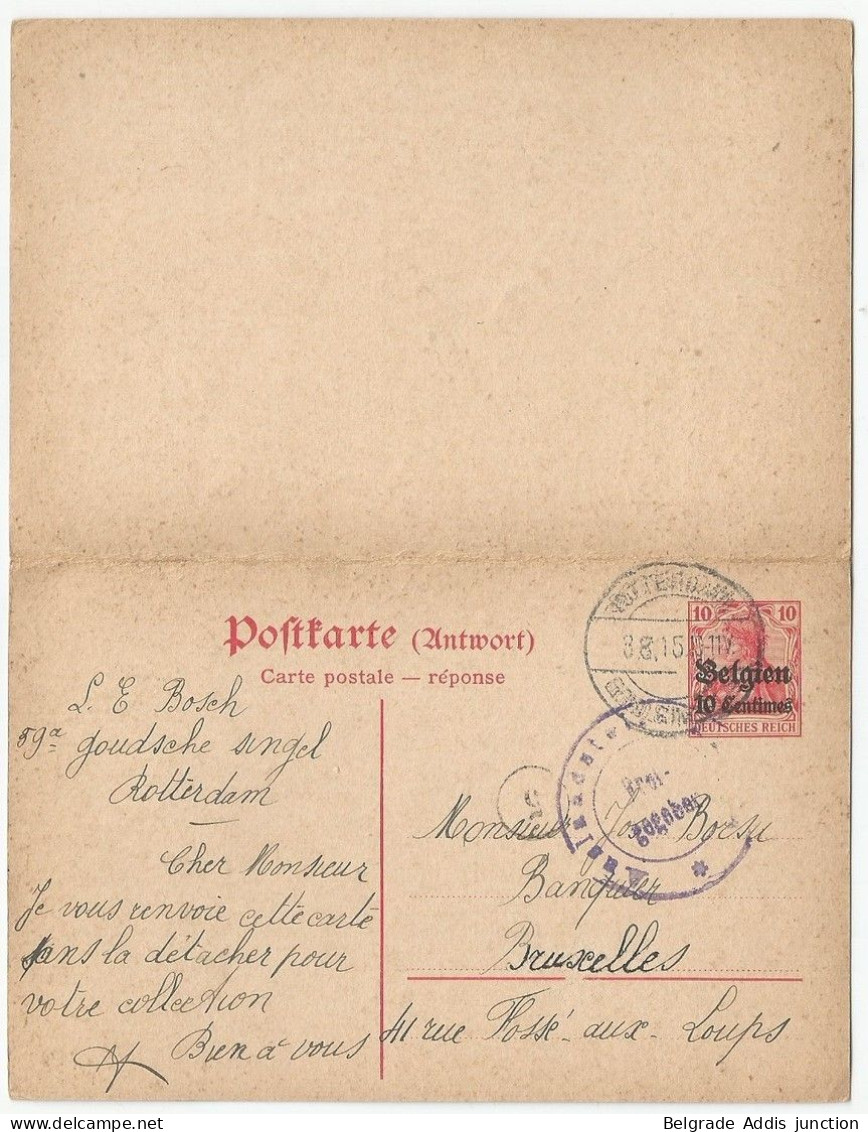 Postkarte (Antwort)
Carte postale — réponse
10 10
Belgien
10 Centimes
DEUTSCHES REICH
ROTTERDAM
8.8.15
L. E Bosch
59a goudsche singel
Rotterdam
Cher Monsieur
Je vous renvoie cette carte
sans la détacher pour
votre collection
Bien à vous
Monsieur Boesu
Banquier
Bruxelles
41 rue Fossé-aux-Loups
Auslandste
Frei-
gegeben
Belgrade Addis junction